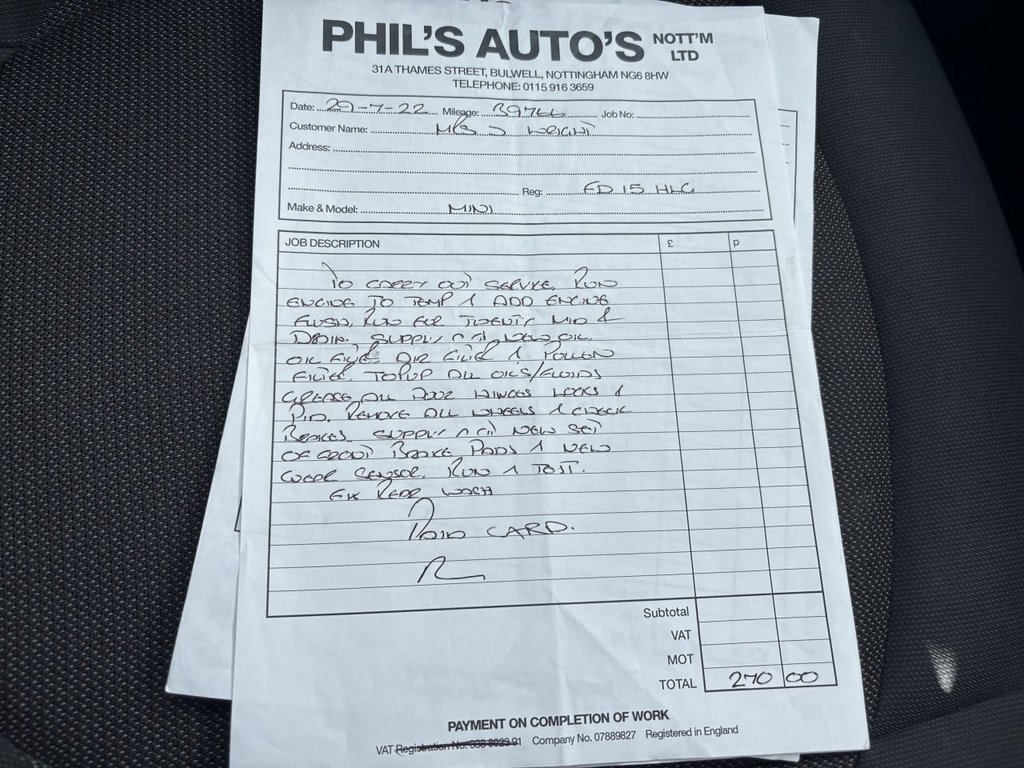 PHIL'S AUTO'S NOTT'M LTD
31A THAMES STREET, BULWELL, NOTTINGHAM NG6 8HW
TELEPHONE: 0115 916 3659
Date: 29-7-22 Mileage: Job No:
Customer Name: MRS J WRIGHT
Address:
Reg: FD15 HLG
Make & Model: MINI
JOB DESCRIPTION £ p
TO CARRY OUT SERVICE, RUN
ENGINE TO TEMP & ADD ENGINE
FLUSH, RUN FOR TWENTY MIN &
DRAIN. SUPPLY & FIT NEW OIL
OIL FILTER AIR FILTER & POLLEN
FILTER. TOPUP ALL OILS/FLUIDS
GREASE ALL DOOR HINGES LOCKS &
PIN. REMOVE ALL WHEELS & CHECK
BRAKES. SUPPLY & FIT NEW SET
OF FRONT BRAKE PADS & NEW
WEAR SENSOR. RUN & TEST.
FIX REAR WASH
PAID CARD.
Subtotal
VAT
MOT
TOTAL 270 00
PAYMENT ON COMPLETION OF WORK
VAT Registration No: Company No. 07889827 Registered in England